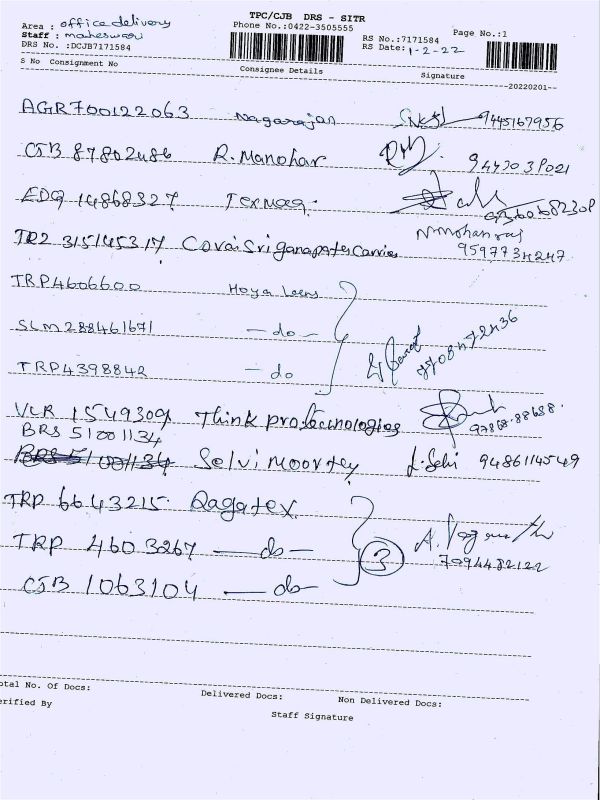 TPC/CJB DRS - SITR
Area : office delivery Phone No.:0422-3505555 Page No.:1
Staff : maheswari RS No.:7171584
DRS No. :DCJB7171584 RS Date: 1-2-22
S No Consignment No Consignee Details Signature
20220201
AGR700122063 Nagarajan 9445167956
CJB 87802486 R.Manohar
EDQ 14868327 Texmaq.
N.mohanraj
TR2 315145317 Covai Sri ganapates Carries 9597734247
TRP4606600 Hoya Lens
SLM288461671 -do-
TRP4398842 -do
VLR 1549309 Think pro.tecnologies 97868-88688.
BRS 51001134
BRS 51001134 Selvi Moortey 9486114549
TRP 6643215. Ragatex
TRP 4603267 -do- 3 7094482122
CJB 1063104 -do-
otal No. Of Docs: Delivered Docs: Non Delivered Docs:
erified By Staff Signature